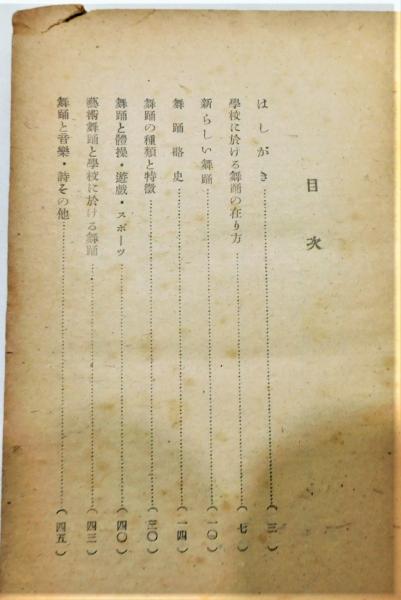 目次
はしがき……(三)
學校に於ける舞踊の在り方……(七)
新らしい舞踊……(一〇)
舞踊略史……(一四)
舞踊の種類と特徴……(三〇)
舞踊と體操・遊戲・スポーツ……(四〇)
藝術舞踊と學校に於ける舞踊……(四三)
舞踊と音樂・詩その他……(四五)